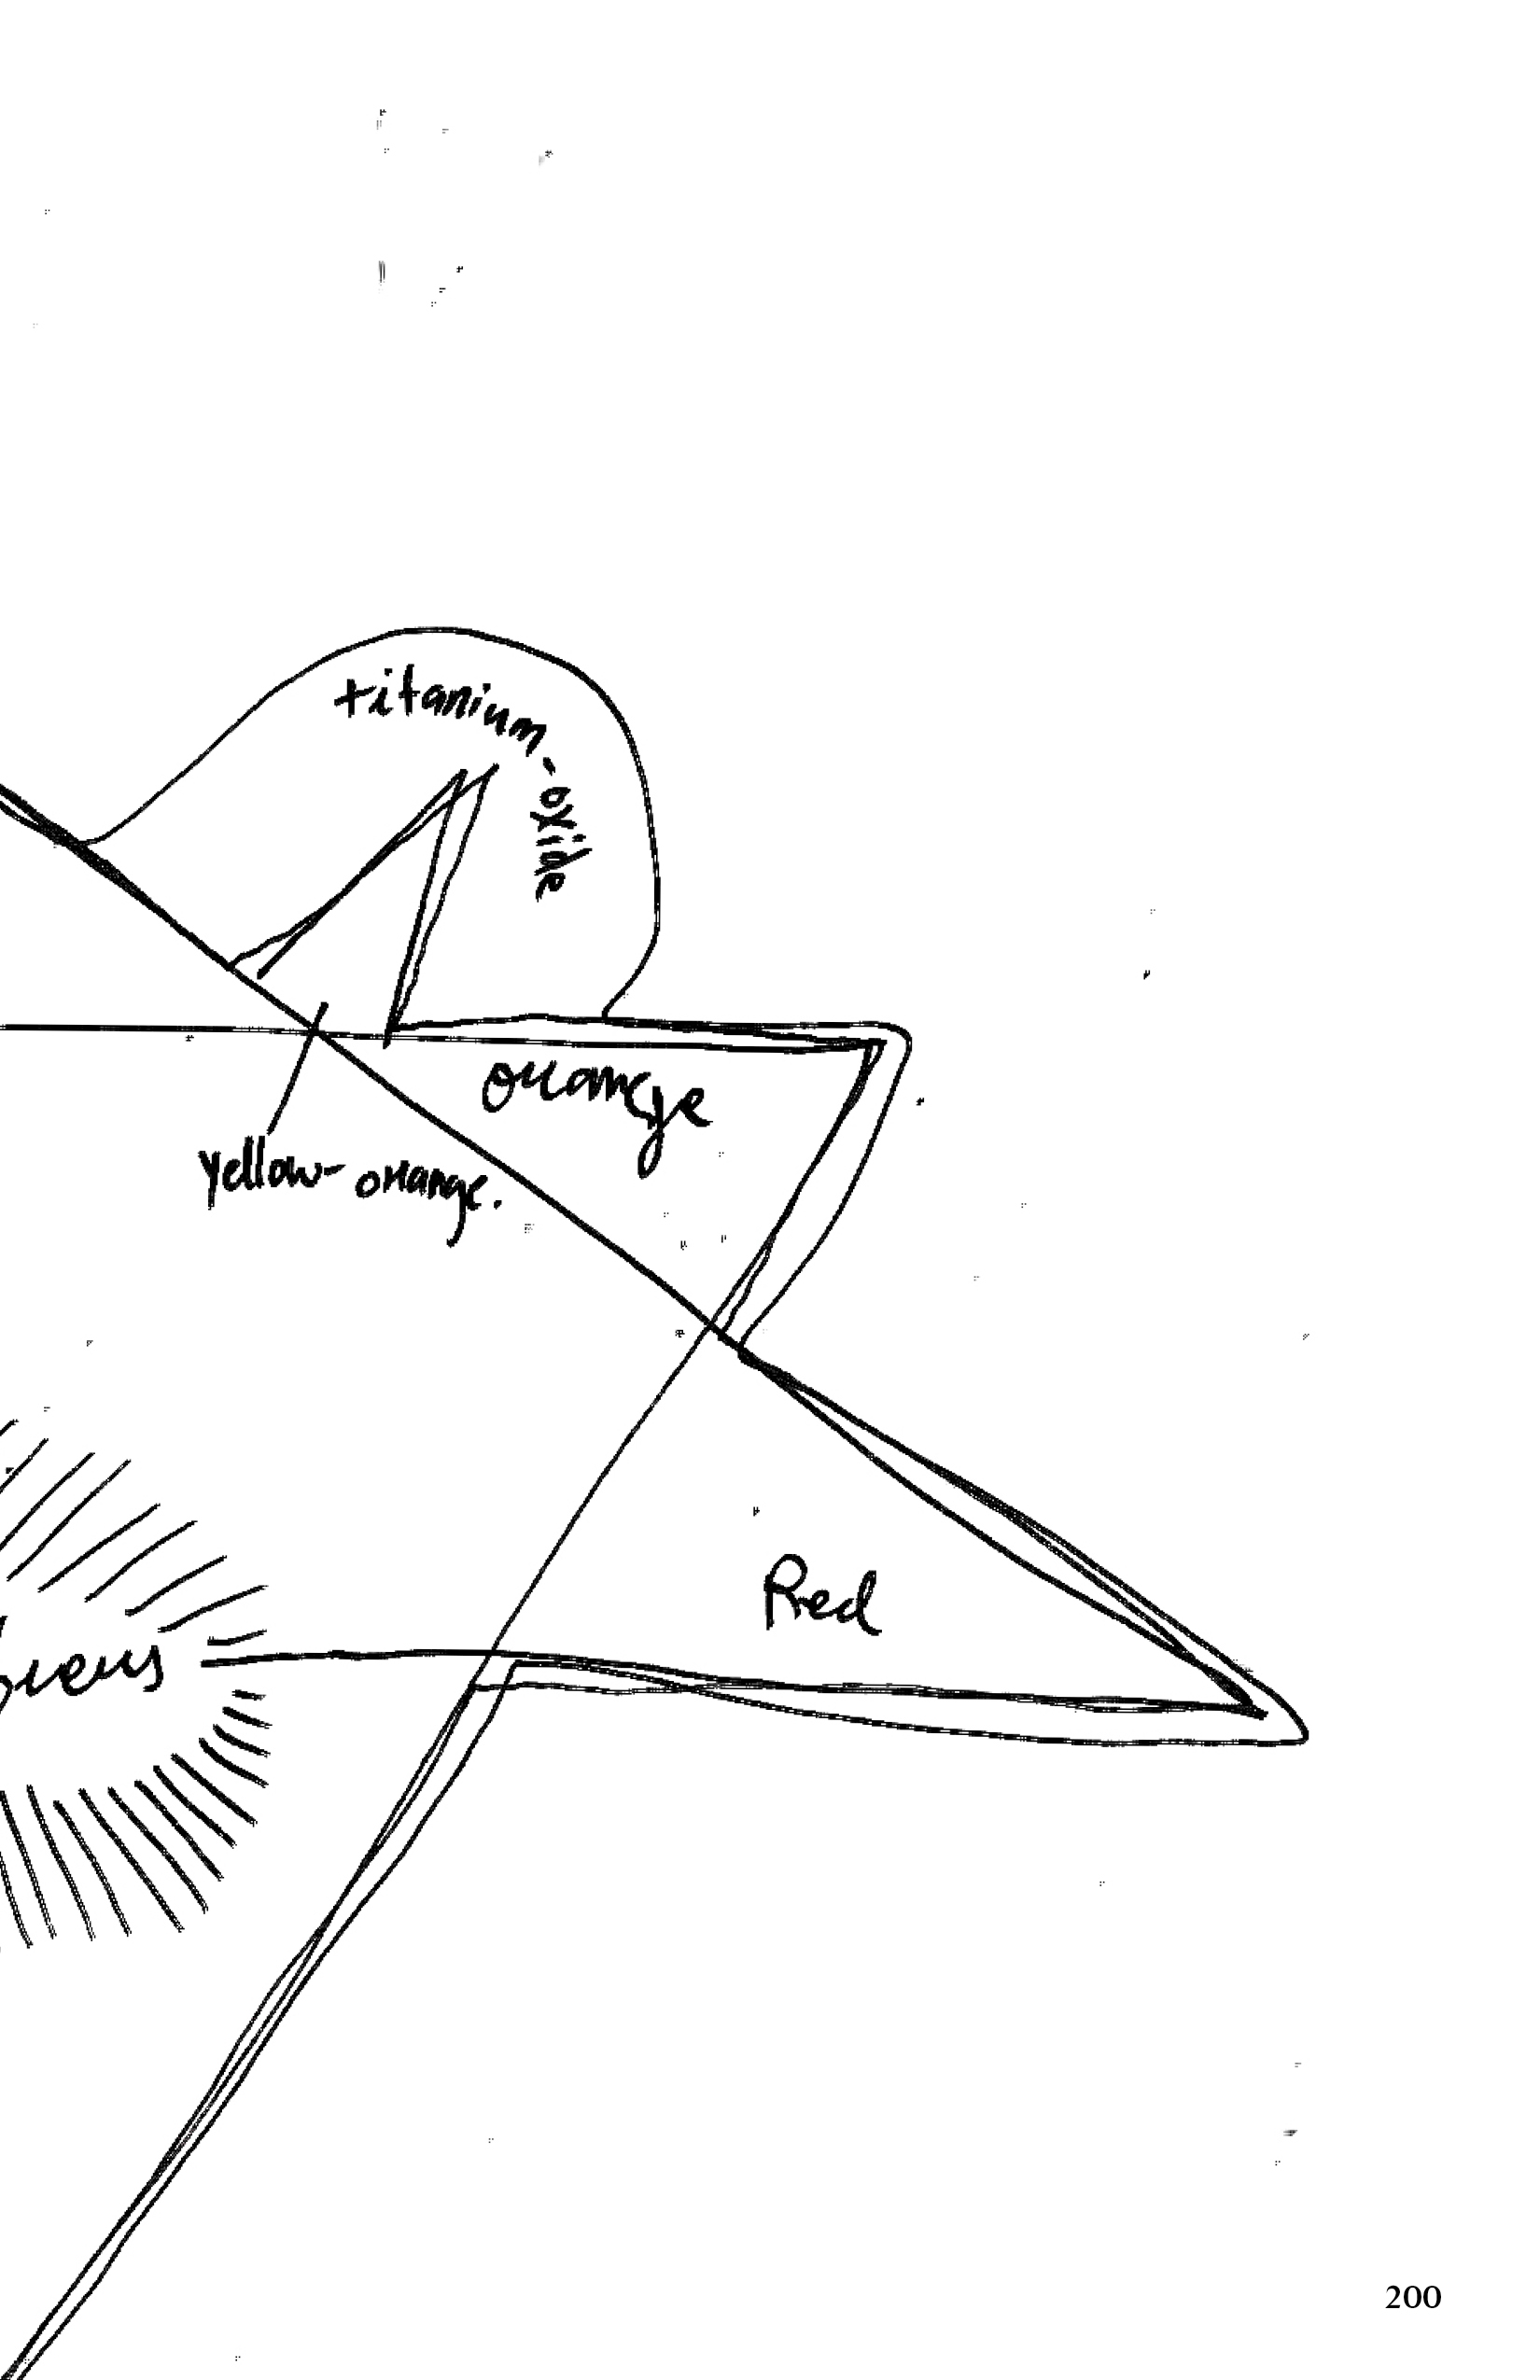 titanium-oxide
orange
yellow-orange.
Red
200